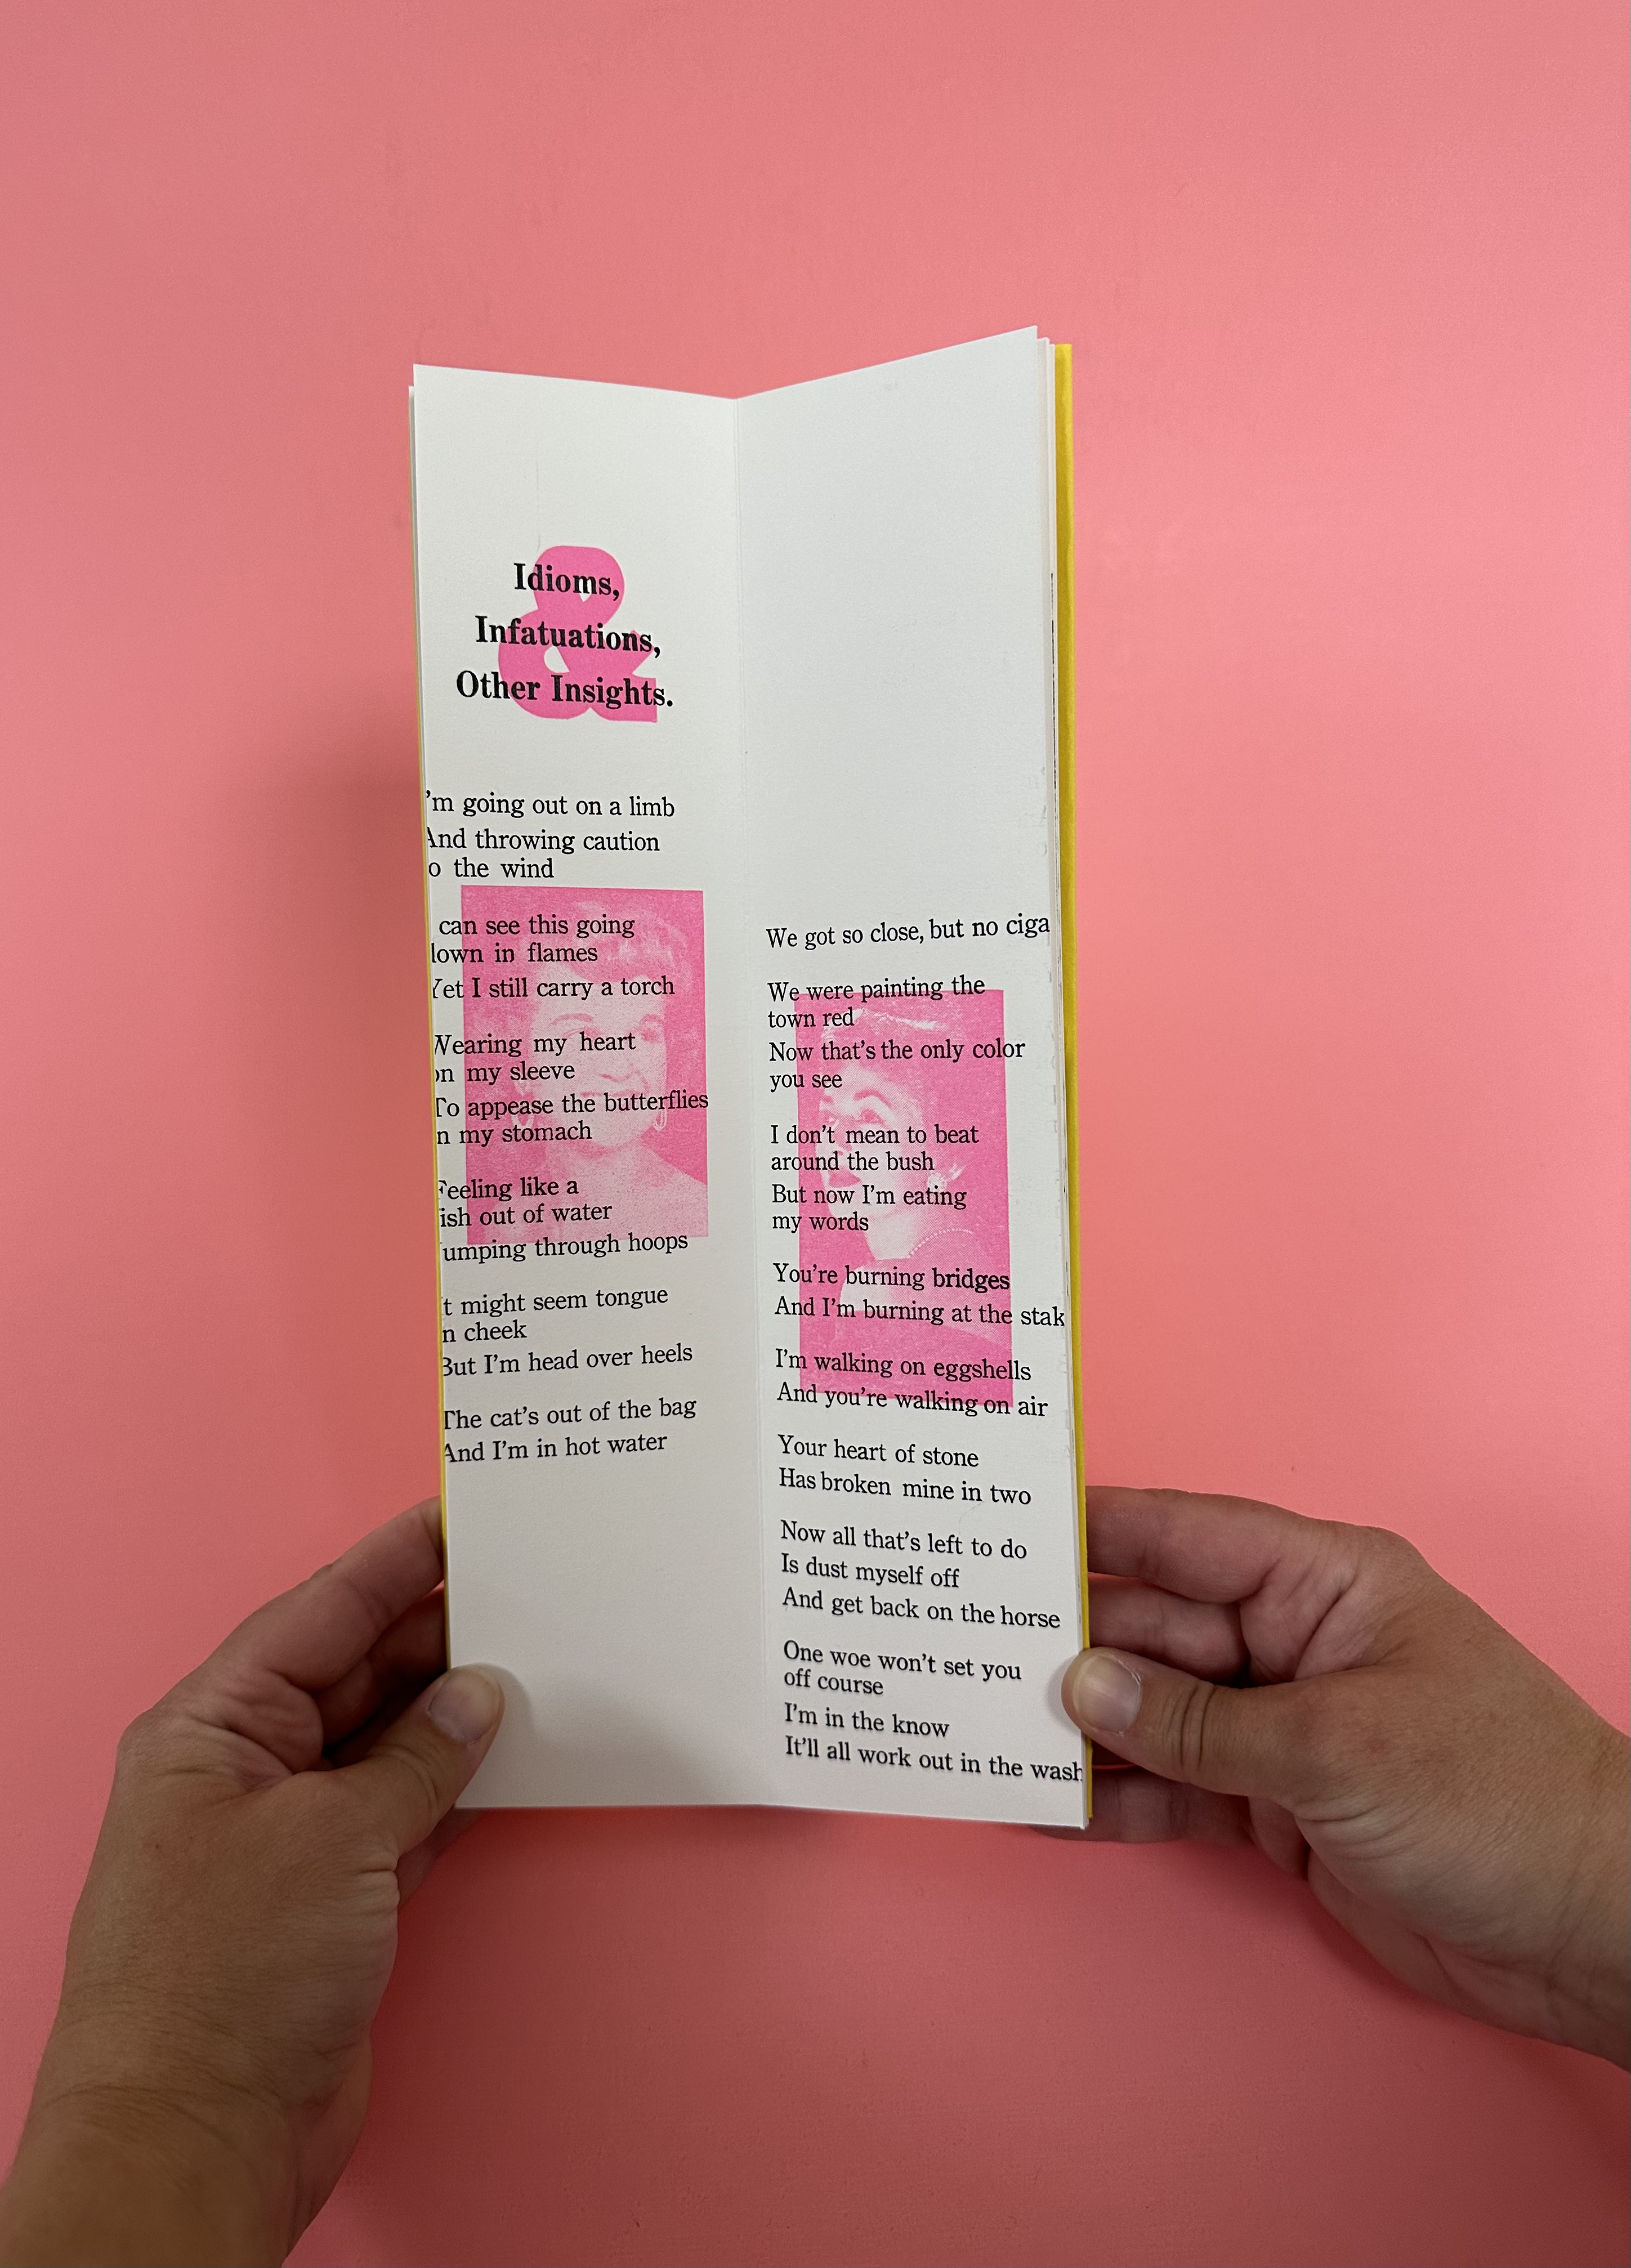 &
Idioms,
Infatuations,
Other Insights.
'm going out on a limb
And throwing caution
o the wind
can see this going
down in flames
Yet I still carry a torch
Wearing my heart
on my sleeve
To appease the butterflies
n my stomach
Feeling like a
ish out of water
umping through hoops
t might seem tongue
n cheek
But I'm head over heels
The cat's out of the bag
And I'm in hot water
We got so close, but no ciga
We were painting the
town red
Now that's the only color
you see
I don't mean to beat
around the bush
But now I'm eating
my words
You're burning bridges
And I'm burning at the stak
I'm walking on eggshells
And you're walking on air
Your heart of stone
Has broken mine in two
Now all that's left to do
Is dust myself off
And get back on the horse
One woe won't set you
off course
I'm in the know
It'll all work out in the wash